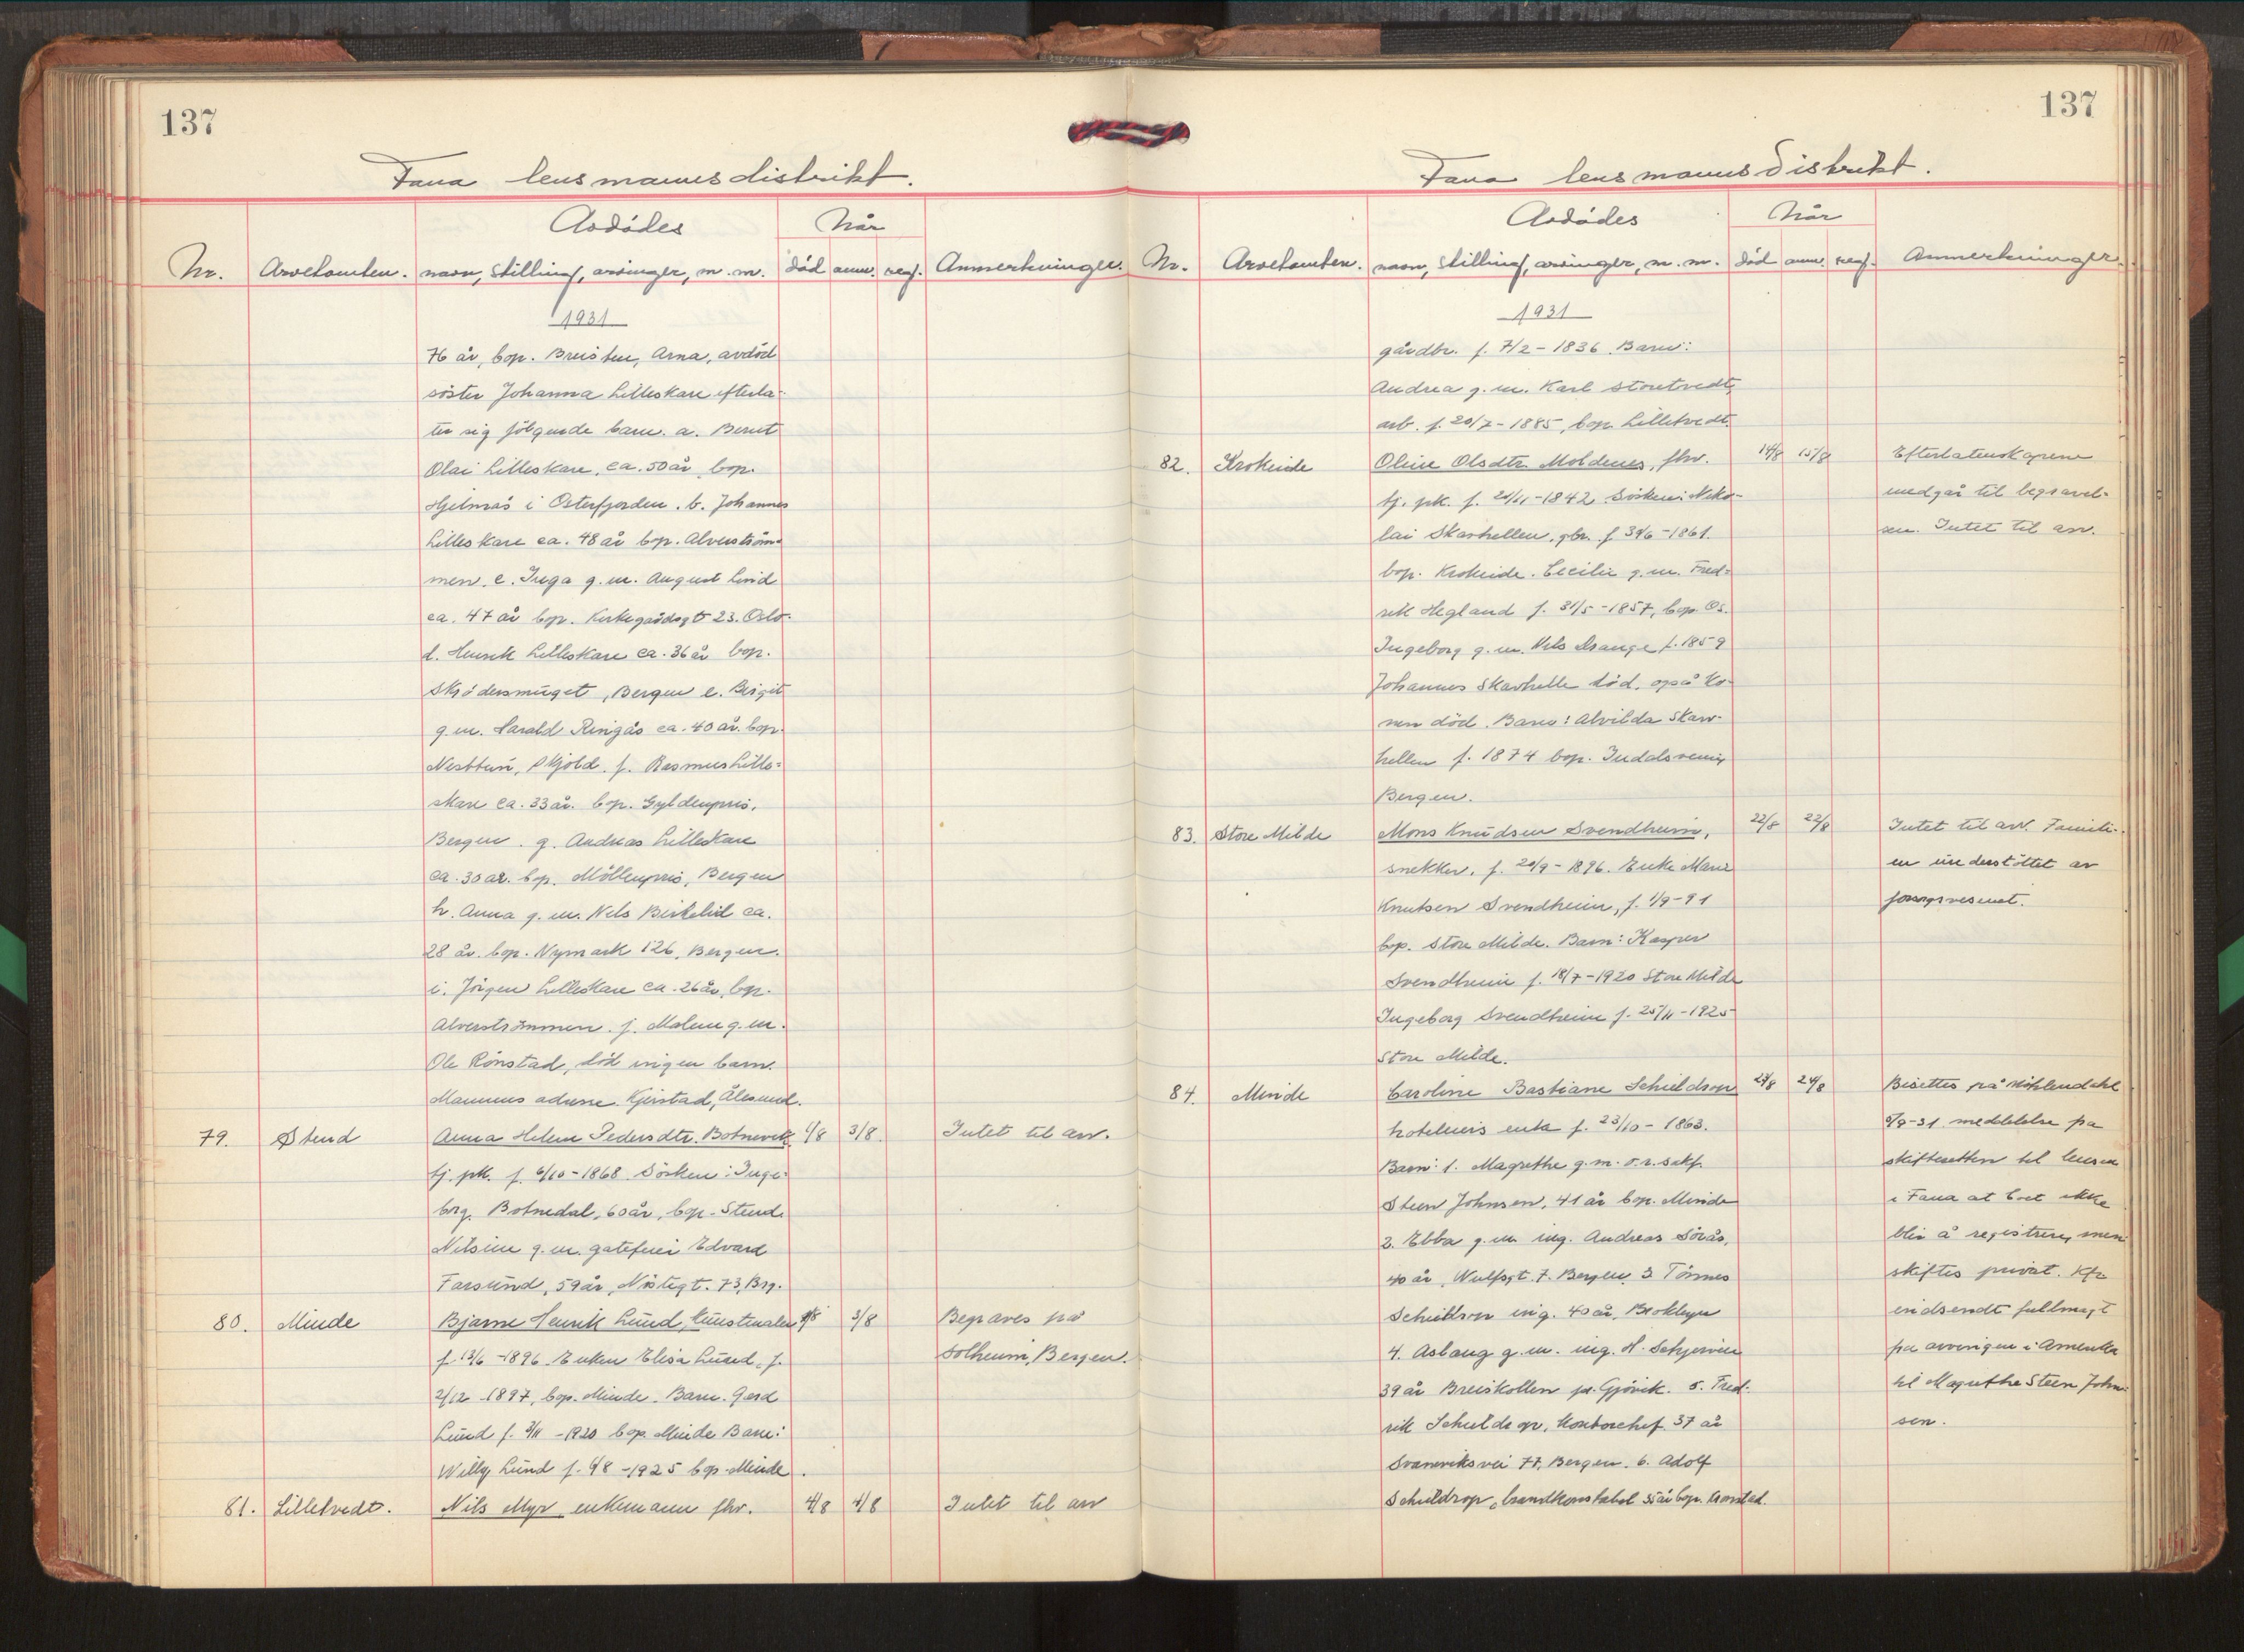 137
Fana lensmannsdistrikt.
Avdødes
Når
Nr. Arvetomten. navn, stilling, arvinger, m.m. død anm. reg. Anmerkninger.
1931
76 år, bop. Breisten, Arna, avdöd
söster Johanna Lilleskare efterla-
ter sig fölgende barn. a. Bernt
Olai Lilleskare, ca. 50 år, bop.
Hjelmås i Osterfjorden. b. Johannes
Lilleskare ca. 48 år bop. Alverström-
men. c. Inga g. m. August Lind
ca. 47 år bop. Kirkegårdsgt 23. Oslo.
d. Henrik Lilleskare ca. 36 år bop.
Skrödersmuget, Bergen e. Birgit
g. m. Harald Ringås ca. 40 år. bop.
Nesttun, Skjold. f. Rasmus Lille-
skare ca. 33 år. bop. Gyldenpris,
Bergen. g. Andreas Lilleskare
ca. 30 år. bop. Möllenpris, Bergen
h. Anna g. m. Nels Birkelid ca.
28 år. bop. Nymark 126, Bergen.
i. Jörgen Lilleskare ca. 26 år, bop.
Alverströmmen. j. Malene g. m.
Ole Rönstad, död ingen barn.
Mannens adresse Gjerstad, Ålesund.
79. Stend Anna Helene Pedersdtr. Botnevik 1/8 3/8 Intet til arv.
tj. pk. f. 6/10-1868 Sösken: Inge-
borg Botnedal, 60 år, bop. Stend.
Nilsine g. m. gatefeier Edvard
Farsund, 59 år, Nöstegt. 73, Brg.
80. Minde Bjarne Henrik Lund, kunstmaler 1/8 3/8 Begraves på
f. 13/6-1896 Enken Elisa Lund, f. Solheim, Bergen.
2/12 1897, bop. Minde. Barn. Gerd
Lund f. 3/11-1920 bop. Minde Barn:
Willy Lund f. 4/8-1925 bop. Minde.
81. Lilletvedt. Nils Myr enkemann fhv. 4/8 4/8 Intet til arv
137
Fana lensmannsdistrikt.
Avdødes
Når
Nr. Arvetomten. navn, stilling, arvinger, m.m. død anm. reg. Anmerkninger.
1931
gårdbr. f. 7/2-1836. Barn:
Andrea g. m. Karl Storetvedt,
arb. f. 20/7-1885, bop. Lilletvedt.
82. Krokeide Oline Olsdtr. Moldenes, fhv. 14/8 15/8 Efterlatenskapene
tj. pk. f. 20/11-1842 Sösken: Niko- medgår til begravel-
lai Skarhellen, gbr. f. 30/6-1861. sen. Intet til arv.
bop. Krokeide. Cecilie g. m. Fred-
rik Hegland f. 31/5-1857, bop. Os.
Ingeborg g. m. Nils Drange f. 1859
Johannes Skarhelle död, også ko-
nen död. Barn: Alvilda Skar-
hellen f. 1874 bop. Indalsveien,
Bergen.
83. Store Milde Mons Knudsen Svendheim, 22/8 22/8 Intet til arv. Famili-
snekker. f. 20/9-1896. Enke Marie en understöttet av
Knutsen Svendheim, f. 1/9-91 forsorgsvesenet.
bop. Store Milde. Barn: Kasper
Svendheim f. 18/7-1920 Store Milde
Ingeborg Svendheim f. 25/11-1925
Store Milde.
84. Minde Caroline Bastiane Schieldrop 24/8 24/8 Bisettes på Möhlendahl
hoteleiers enke f. 23/10-1863. /9-31. meddelelse fra
Barn: 1. Magrethe g. m. o.r.sakf. skifteretten til lensm.
Steen Johnsen, 41 år bop. Minde i Fana at boet ikke
2. Ebba g. m. ing. Andreas Sörås, blir å registrere, men
40 år, Wulfsgt. 7. Bergen. 3. Tönnes skiftes privat. Kfr.
Schieldrop ing. 40 år, Brooklyn indsendt fullmagt
4. Aslaug g. m. ing. H. fra arvingen i Amerika
39 år Breiskollen pr. Gjövik. 5. Fred- til Magrethe Steen John-
rik Schieldrop, kontorchef 37 år sen.
Svaneviksvei 77, Bergen. 6. Adolf
Schieldrop, brandkonstabel 35 år bop. Kronstad.